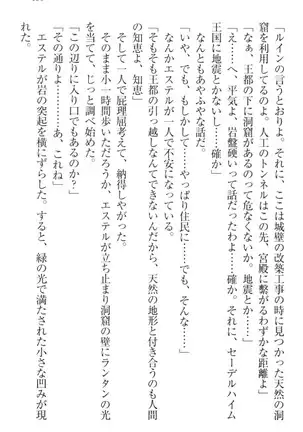 「ルインの言うとおりよ。それに、ここは城壁の改築工事の時に天然の洞
窟を利用してるのよ。人工のトンネルはこの先、宮殿に繋がるわずかな距離よ」
「なぁ、王都の下に洞窟があるのって危なくないか。地震とか」
「え……へ、平気よ、岩盤硬いって話だったわよ……確か。それに、セーデルハイム
王国に地震とかないし……確か」
なんともあやふやな話だ。
「いや、でも、もしかして……やっぱり住民に……でも」
なんかエステルが一人で不安になっている。
「そもそも王都の引っ越しなんてできないんだから、天然の地形と付き合うのも人間
の知恵、知恵」
そして一人で屁理屈考えて、納得しやがった。
そのまま小一時間歩いただろうか、エステルが立ち止まり洞窟の壁にランタンの光
を当てて、じっと調べ始めた。
「この辺りに入り口でもあるのか?」
「その通りよ……あ、これね」
エステルが岩の突起を横にずらした。すると、緑の光で満たされた小さな凹みが現
れた。